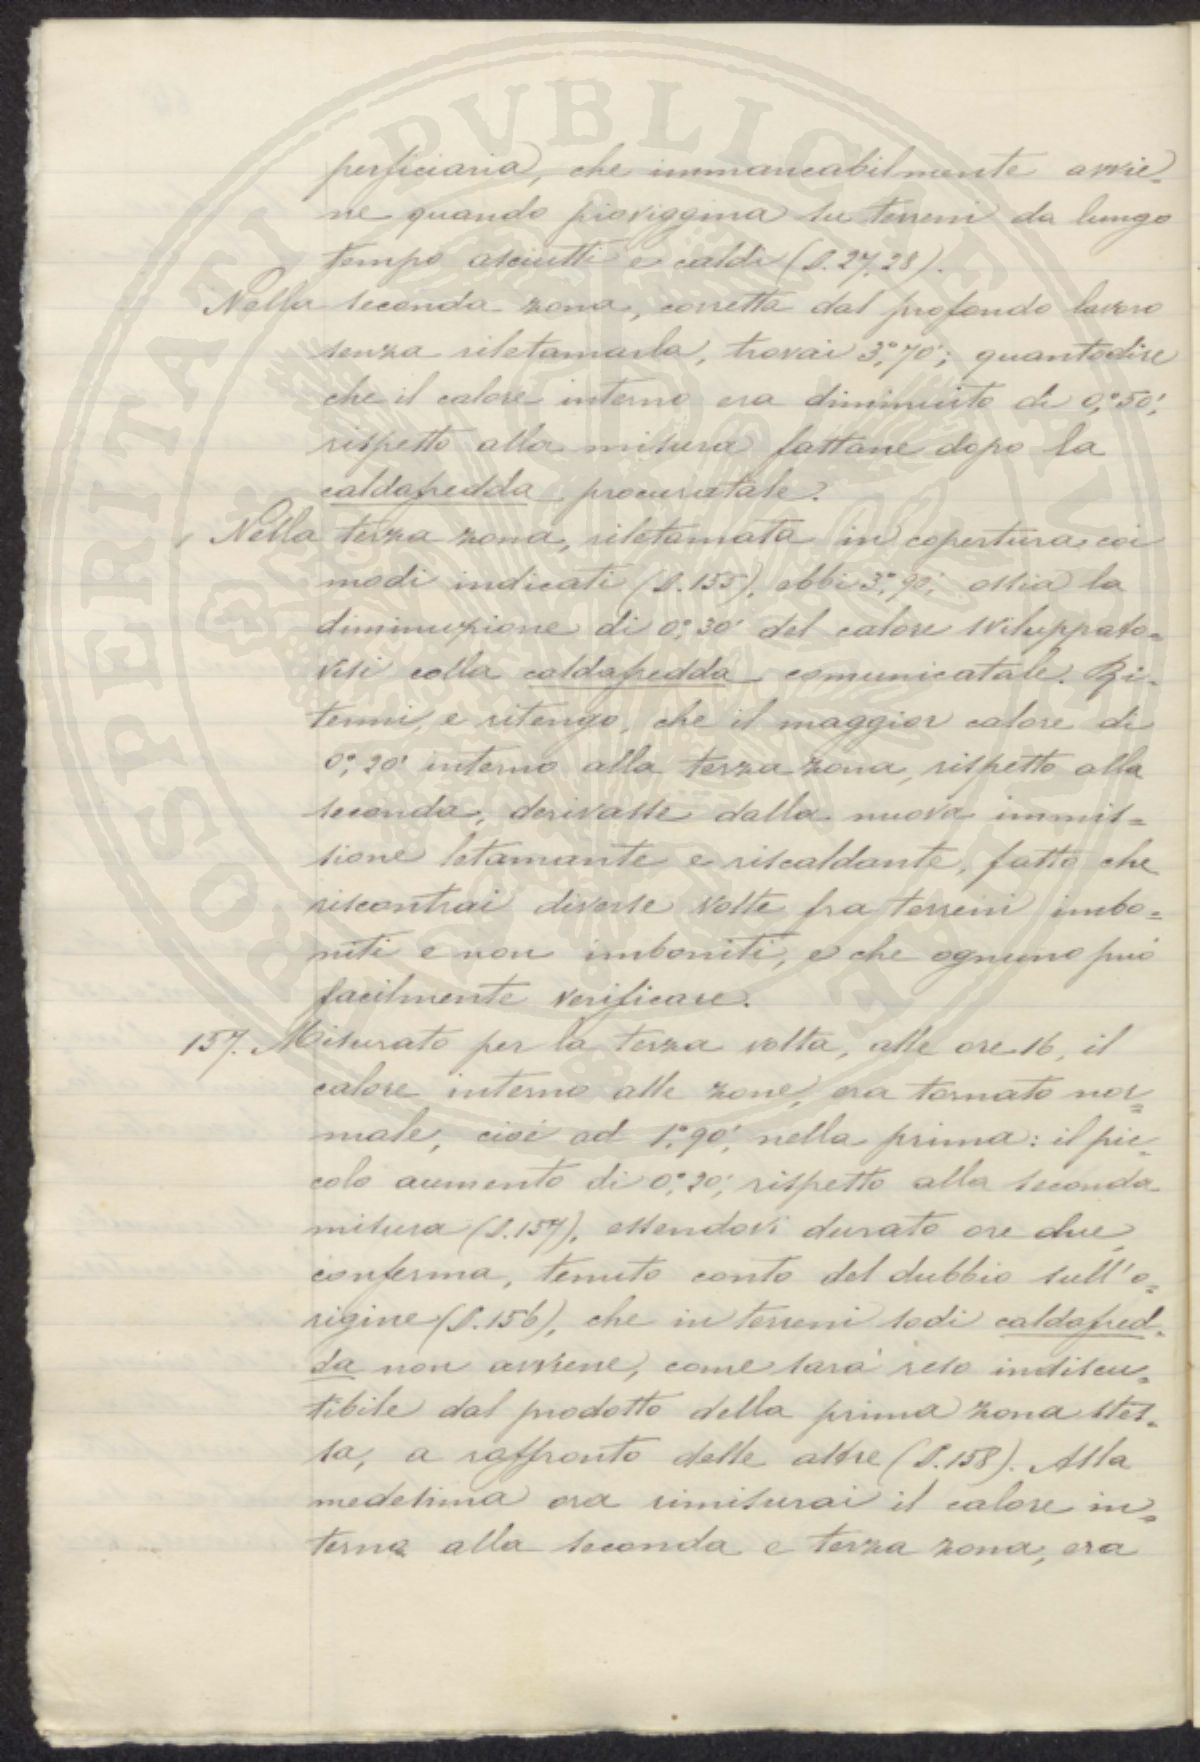 perficiaria, che immancabilmente avvie-
ne quando pioviggina su terreni da lungo
tempo asciutti e caldi (S. 27, 28).
Nella seconda zona, corretta dal profondo lavoro
senza riletamarla, trovai 3°,70'; quantodire
che il calore interno era diminuito di 0°,50',
rispetto alla misura fattane dopo la
caldafredda procuratale.
Nella terza zona, riletamata in copertura coi
modi indicati (S. 155), ebbi 3°,90', ossia la
diminuzione di 0°,30' del calore sviluppato=
visi colla caldafredda comunicatale. Ri-
tenni, e ritengo, che il maggior calore di
0°,20' interno alla terza zona, rispetto alla
seconda, derivasse dalla nuova immis=
sione letamante e riscaldante, fatto che
riscontrai diverse volte fra terreni imbo=
niti e non imboniti, e che ognuno può
facilmente verificare.
157. Misurato per la terza volta, alle ore 16, il
calore interno alle zone, era tornato nor=
male, cioè ad 1°,90', nella prima: il pic=
colo aumento di 0°,20', rispetto alla seconda
misura (S. 157), essendovi durato ore due,
conferma, tenuto conto del dubbio sull'o=
rigine (S. 156), che in terreni sodi caldafred=
da non avviene, come sarà reso indiscu=
tibile dal prodotto della prima zona stes=
sa, a raffronto delle altre (S. 158). Alla
medesima ora rimisurai il calore in=
terno alla seconda e terza zona, era
PVBLICAE
PROSPERITATI